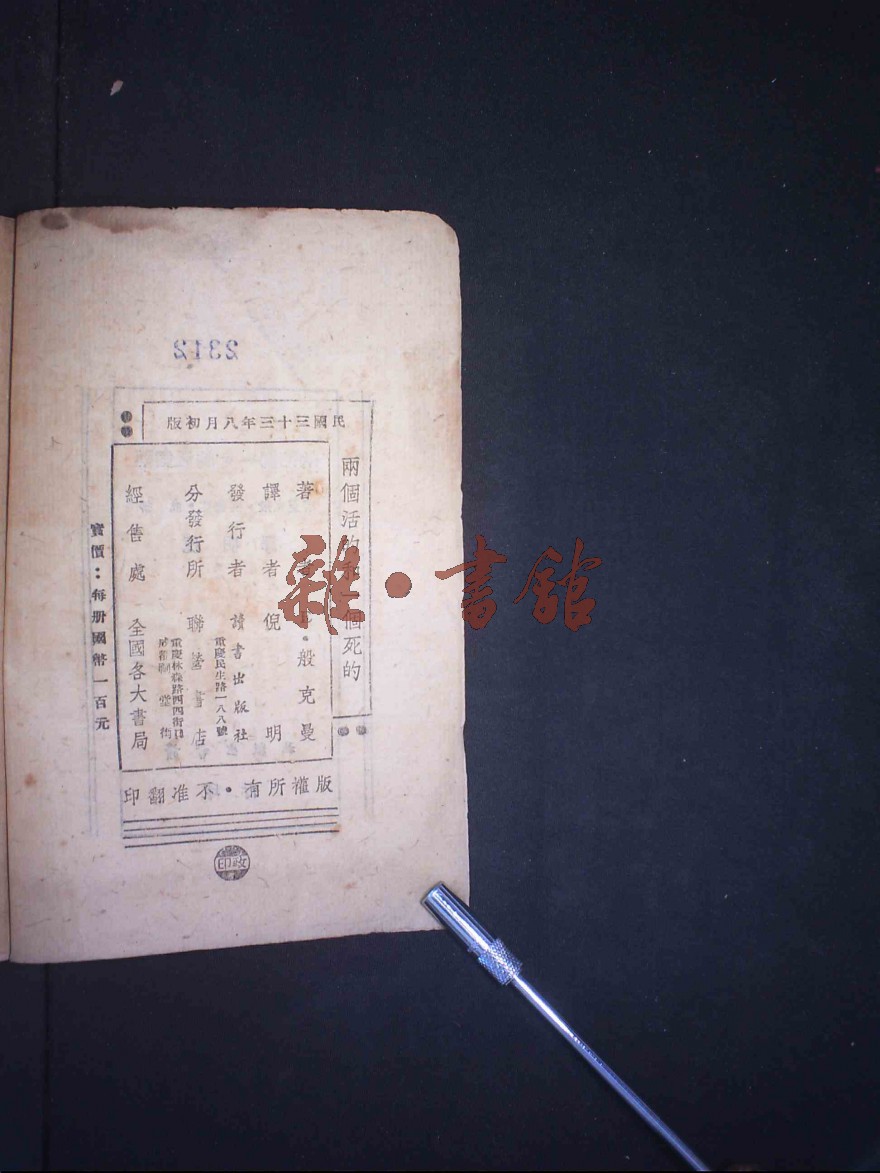 2312
民國三十三年八月初版
兩個活的 個死的
著 ・般克曼
譯者 倪 明
發行者 讀書出版社
重慶民生路一八八號
分發行所 聯 書店
重慶林森路四四街口
經售處 全國各大書局
實價：每册國幣一百元
版權所有・不准翻印
雜・書館